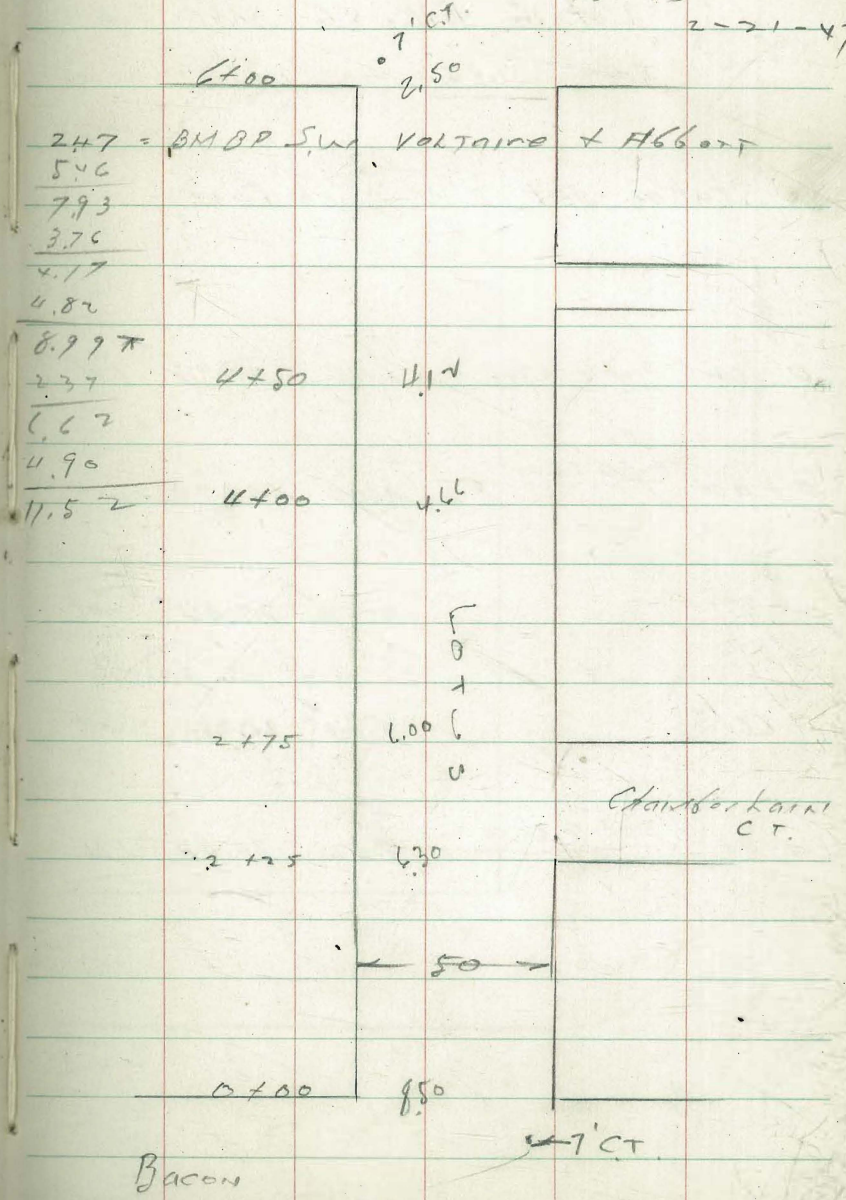 2-21-47
7' C.T.
6+00 2.50
2.47 = BM BP S.W. Voltaire + Abbott
5.46
7.93
3.76
4.17
4.82
8.99 π
2.37
6.62
4.90
11.52
4+50 4.12
4+00 4.66
L
O
T
U
S
2+75 6.00
C T.
2+25 6.30
50
0+00 8.50
7' C.T.
Bacon